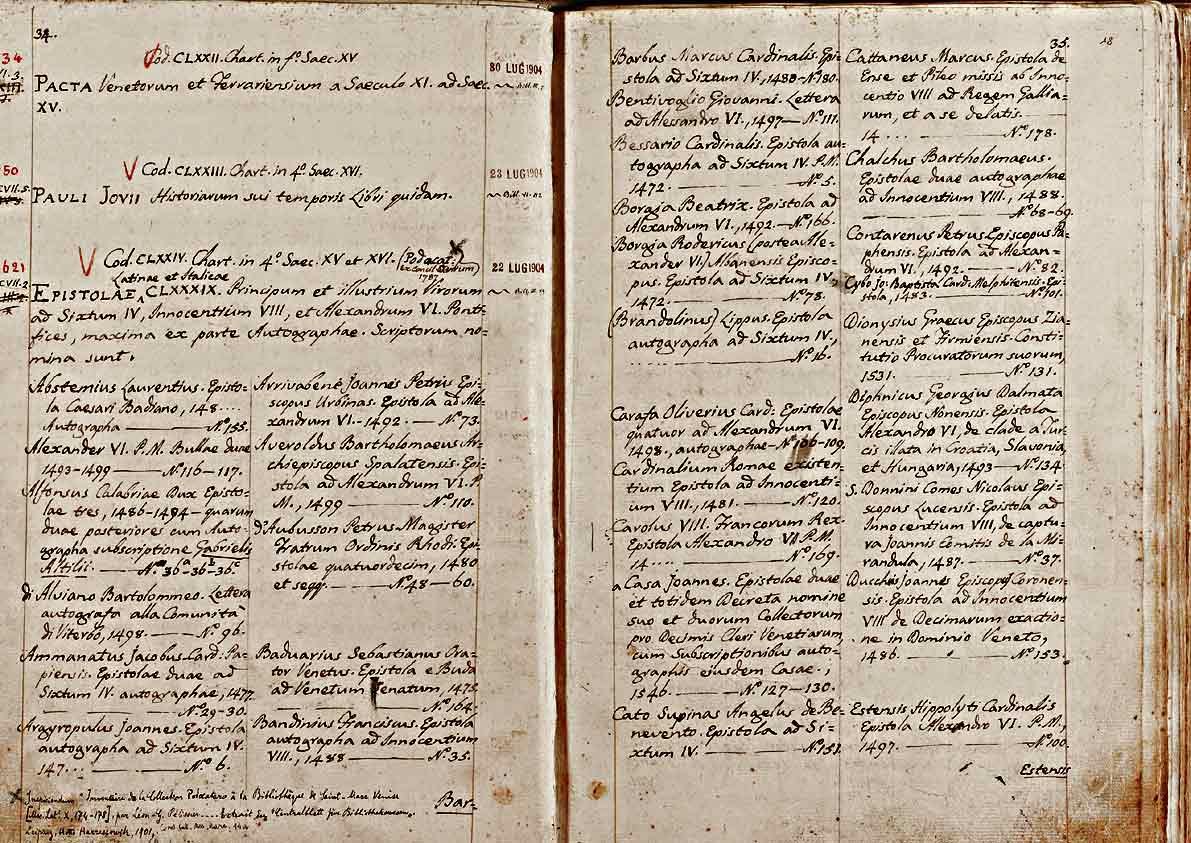 34.
Cod. CLXXII. Chart. in fº. Saec. XV
34
30 LUG 1904
PACTA Venetorum et Ferrariensium a Saeculo XI. ad Saec.
XV.
V Cod. CLXXIII. Chart. in 4º. Saec. XVI.
50
23 LUG 1904
PAULI JOVII Historiarum sui temporis Libri quidam.
V Cod. CLXXIV. Chart. in 4º. Saec. XV et XVI.
1787
621
22 LUG 1904
Latinae et Italicae
EPISTOLAE CLXXXIX. Principum et illustrium Virorum
ad Sixtum IV, Innocentium VIII, et Alexandrum VI. Ponti-
fices, maxima ex parte Autographae. Scriptorum no-
mina sunt.
Abstemius Laurentius. Episto-
la Caesari Badiano, 148....
Autographa — Nº. 155.
Alexander VI. P.M. Bullae duae
1493-1499 — Nº 116-117.
Alfonsus Calabriae Dux Episto-
lae tres, 1486-1494 - quarum
duae posteriores cum Auto-
grapha subscriptione Gabrielis
Altilii. — Nº 36ª-36ᵇ-36ᶜ
di Alviano Bartolommeo. Lettera
autografo alla Comunità
di Viterbo, 1498. — Nº. 96.
Ammanatus Jacobus. Card: Pa-
piensis. Epistolae duae ad
Sixtum IV. autographae, 1477.
— Nº 29-30.
Argyropulus Joannes. Epistola
autographa ad Sixtum IV.
147... — Nº 6.
Arrivabene Joannes Petrus Epi-
scopus Urbinas. Epistola ad Ale-
xandrum VI. - 1492. — Nº 73.
Averoldus Bartholomaeus Ar-
chiepiscopus Spalatensis. Epi-
stola ad Alexandrum VI. P.
M., 1499 — Nº 110.
d'Aubusson Petrus Magister
Fratrum Ordinis Rhodi. Epi-
stolae quatuordecim, 1480
et seqq. — Nº 48-60.
Baduarius Sebastianus Ora-
tor Venetus. Epistola e Buda
ad Venetum Senatum, 1475.
— Nº 164.
Bandinius Franciscus. Epistola
autographa ad Innocentium
VIII., 1488 — Nº 35.
Bar-
Inventaire de la Collection à la Bibliothèque de Saint-Marc Venise
Leipzig, Otto Harrassowitz, 1901,
35.
Barbus Marcus Cardinalis. Epi-
stola ad Sixtum IV., 1480 - Nº 80.
Bentivoglio Giovanni. Lettera
ad Alessandro VI., 1497 — Nº 111.
Bessario Cardinalis. Epistola au-
tographa ad Sixtum IV. P.M.
1472. — Nº 5.
Borgia Beatrix. Epistola ad
Alexandrum VI., 1492 - Nº 166.
Borgia Rodericus (postea Ale-
xander VI.) Albanensis Episco-
pus. Epistola ad Sixtum IV.
1472. — Nº 78.
(Brandolinus) Lippus. Epistola
autographa ad Sixtum IV.,
..... — Nº 16.
Carafa Oliverius Card: Epistolae
quatuor ad Alexandrum VI.
1498., autographae - Nº 106-109.
Cardinalium Romae existen-
tium Epistola ad Innocenti-
um VIII., 1481. — Nº 120.
Carolus VIII. Francorum Rex.
Epistola Alexandro VI. P.M.
14.... — Nº 169.
a Casa Joannes. Epistolae duae
et totidem Decreta nomine
suo et duorum Collectorum
pro Decimis Cleri Venetiarum,
cum Subscriptionibus auto-
graphis ejusdem Casae.,
1546. — Nº 127-130.
Cato Supinas Angelus de Be-
nevento. Epistola ad Si-
xtum IV. — Nº 151.
Cattaneus Marcus. Epistola de
Ense et Pileo missis ab Inno-
centio VIII ad Regem Gallia-
rum, et a se delatis.
14.... — Nº 178.
Chalchus Bartholomaeus.
Epistolae duae autographae
ad Innocentium VIII., 1488.
— Nº 68-69.
Contarenus Petrus Episcopus Pa-
phensis. Epistola ad Alexan-
drum VI., 1492. — Nº 82.
Cybo Jo: Baptista Card: Melphitensis. Epi-
stola, 1483. — Nº 101.
Dionysius Graecus Episcopus Zia-
nensis et Firmiensis. Consti-
tutio Procuratorum suorum,
1531. — Nº 131.
Diphnicus Georgius Dalmata
Episcopus Nonensis. Epistola
Alexandro VI, de clade a Tur-
cis illata in Croatia, Slavonia,
et Hungaria, 1493 — Nº 134.
S. Donnini Comes Nicolaus Epi-
scopus Lucensis. Epistola ad
Innocentium VIII, de captu-
ra Joannis Comitis de la Mi-
randula, 1487. — Nº 37.
Ducchis Joannes Episcopus Coronen-
sis. Epistola ad Innocentium
VIII de Decimarum exactio-
ne in Dominio Veneto,
1486. — Nº 153.
Estensis Hippolyti Cardinalis
Epistola Alexandro VI. P.M.,
1497. — Nº 100.
Estensis